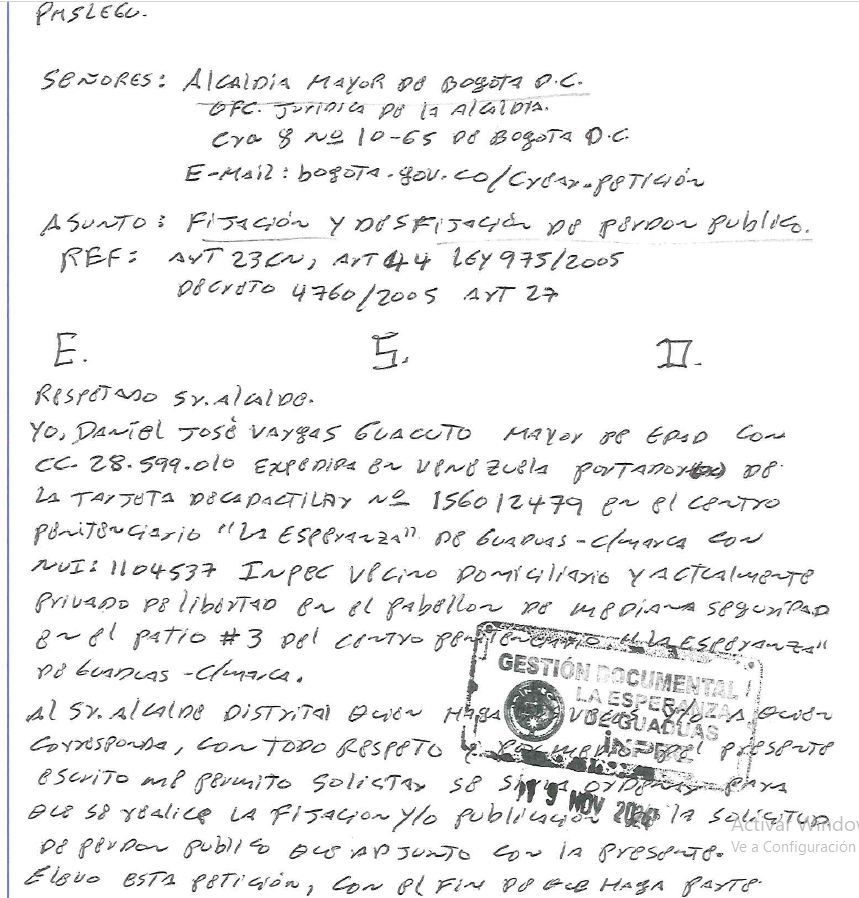 PMSLEGU.
SEÑORES: Alcaldia Mayor De Bogota D.C.
OFC. Juridica De la Alcaldia.
Cra 8 Nº 10-65 De Bogota D.C.
E-Mail: bogota.gov.co/Crear-petición
Asunto: Fijación y Desfijación De perdon publico.
REF: Art 23 CN, Art 44 Ley 975/2005
Decreto 4760/2005 Art 27
E. S. D.
Respetado Sr. Alcalde.
Yo, Daniel José Vargas Guacuto Mayor de Edad con
CC. 28.599.010 Expedida en Venezuela portador de
La Tarjeta Decadactilar Nº 156012479 en el centro
penitenciario "La Esperanza" De Guaduas - C/marca con
NUI: 1104537 Inpec Vecino Domiciliario y Actualmente
privado de libertad en el pabellon de mediana seguridad
en el patio #3 Del centro penitenciario "La Esperanza"
De Guaduas - C/marca.
GESTIÓN DOCUMENTAL
LA ESPERANZA
DE GUADUAS
INPEC
Al Sr. Alcalde Distrital Quien Haga veces y/o A Quien
Corresponda, con Todo Respeto y por medio del presente
escrito me permito solicitar se sirva ordenar para
19 NOV 2024
Que se realice La Fijacion y/o publicación de la solicitud
De perdon publico Que adjunto con la presente.
Elevo esta petición, con el fin de Que Haga parte
Activar Window
Ve a Configuración